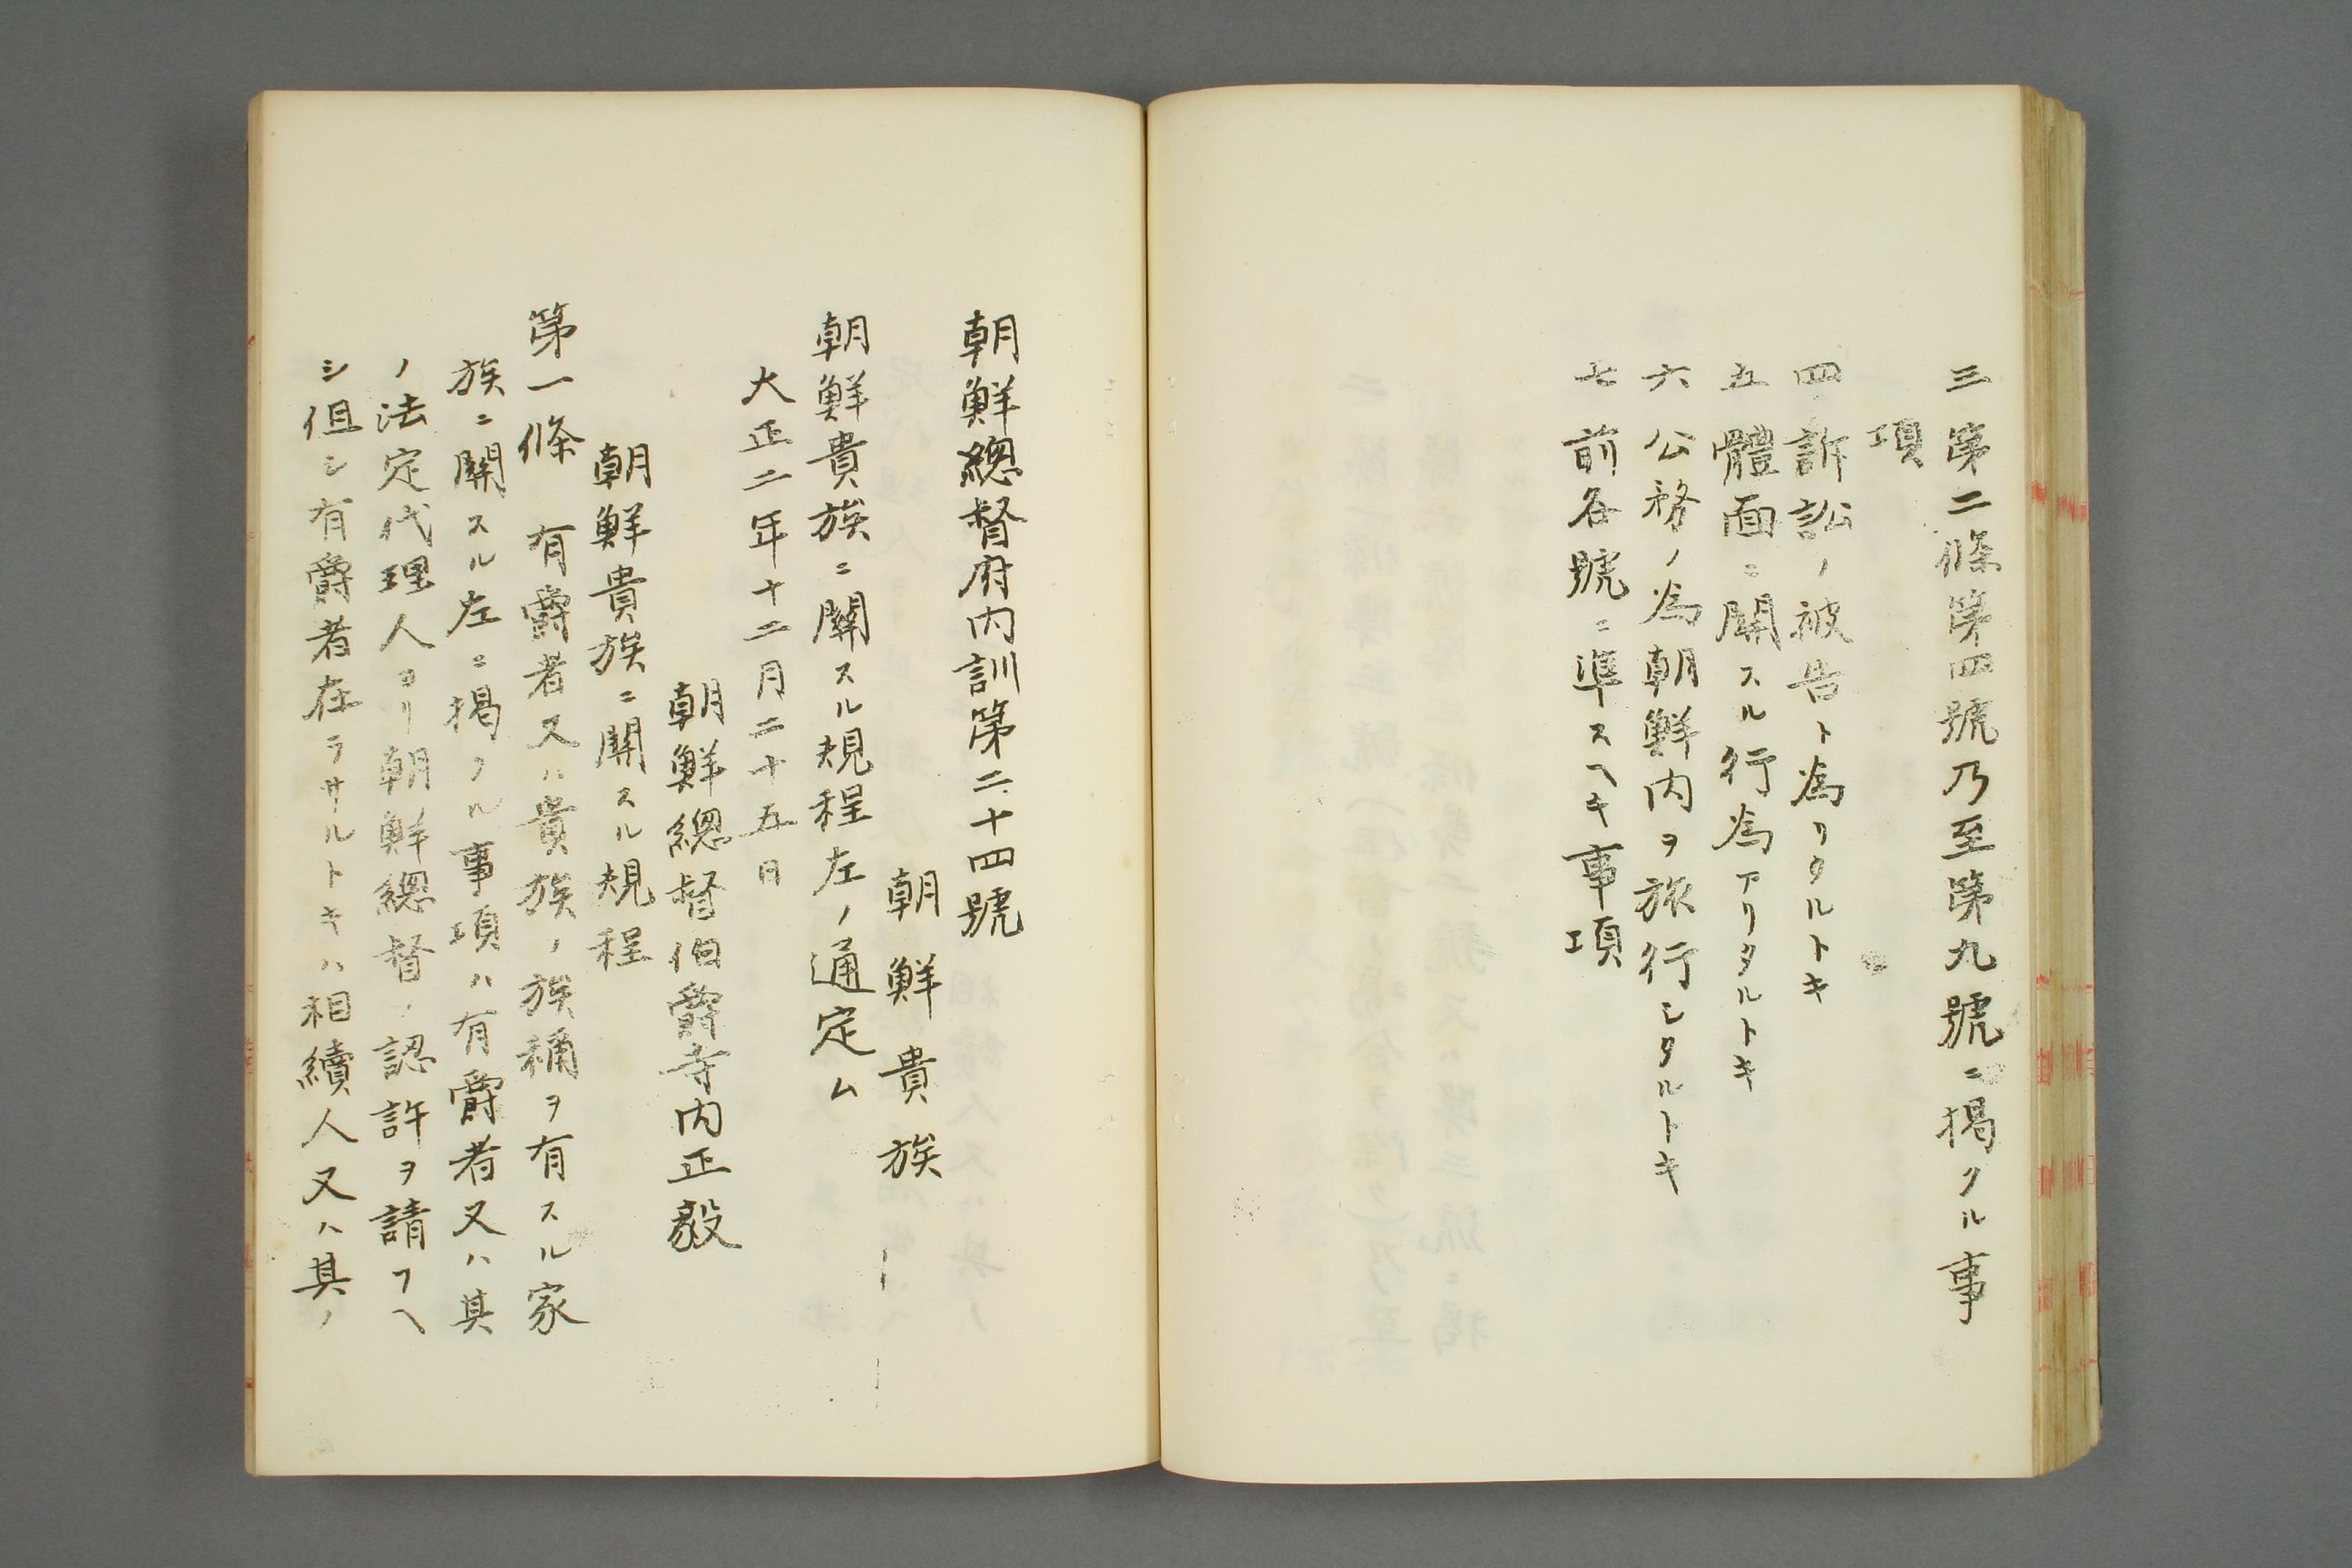 三 第二條第四號乃至第九號ニ掲クル事
項
四 訴訟ノ被告ト爲リタルトキ
五 體面ニ關スル行爲アリタルトキ
六 公務ノ爲朝鮮内ヲ旅行シタルトキ
七 前各號ニ準スヘキ事項
朝鮮總督府内訓第二十四號
朝鮮貴族
朝鮮貴族ニ關スル規程左ノ通定ム
大正二年十二月二十五日
朝鮮總督伯爵寺内正毅
朝鮮貴族ニ關スル規程
第一條 有爵者又ハ貴族ノ族稱ヲ有スル家
族ニ關スル左ニ掲クル事項ハ有爵者又ハ其
ノ法定代理人ヨリ朝鮮總督ノ認許ヲ請フヘ
シ但シ有爵者在ラサルトキハ相續人又ハ其ノ